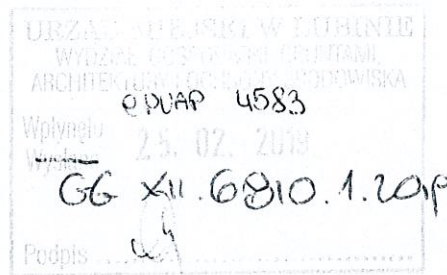 URZĄD MIEJSKI W LUBINIE
WYDZIAŁ GOSPODARKI GRUNTAMI,
ARCHITEKTURY I OCHRONY ŚRODOWISKA
ePUAP 4583
Wpłynęło
25. 02. 2019
GG XII.6810.1.20
Podpis